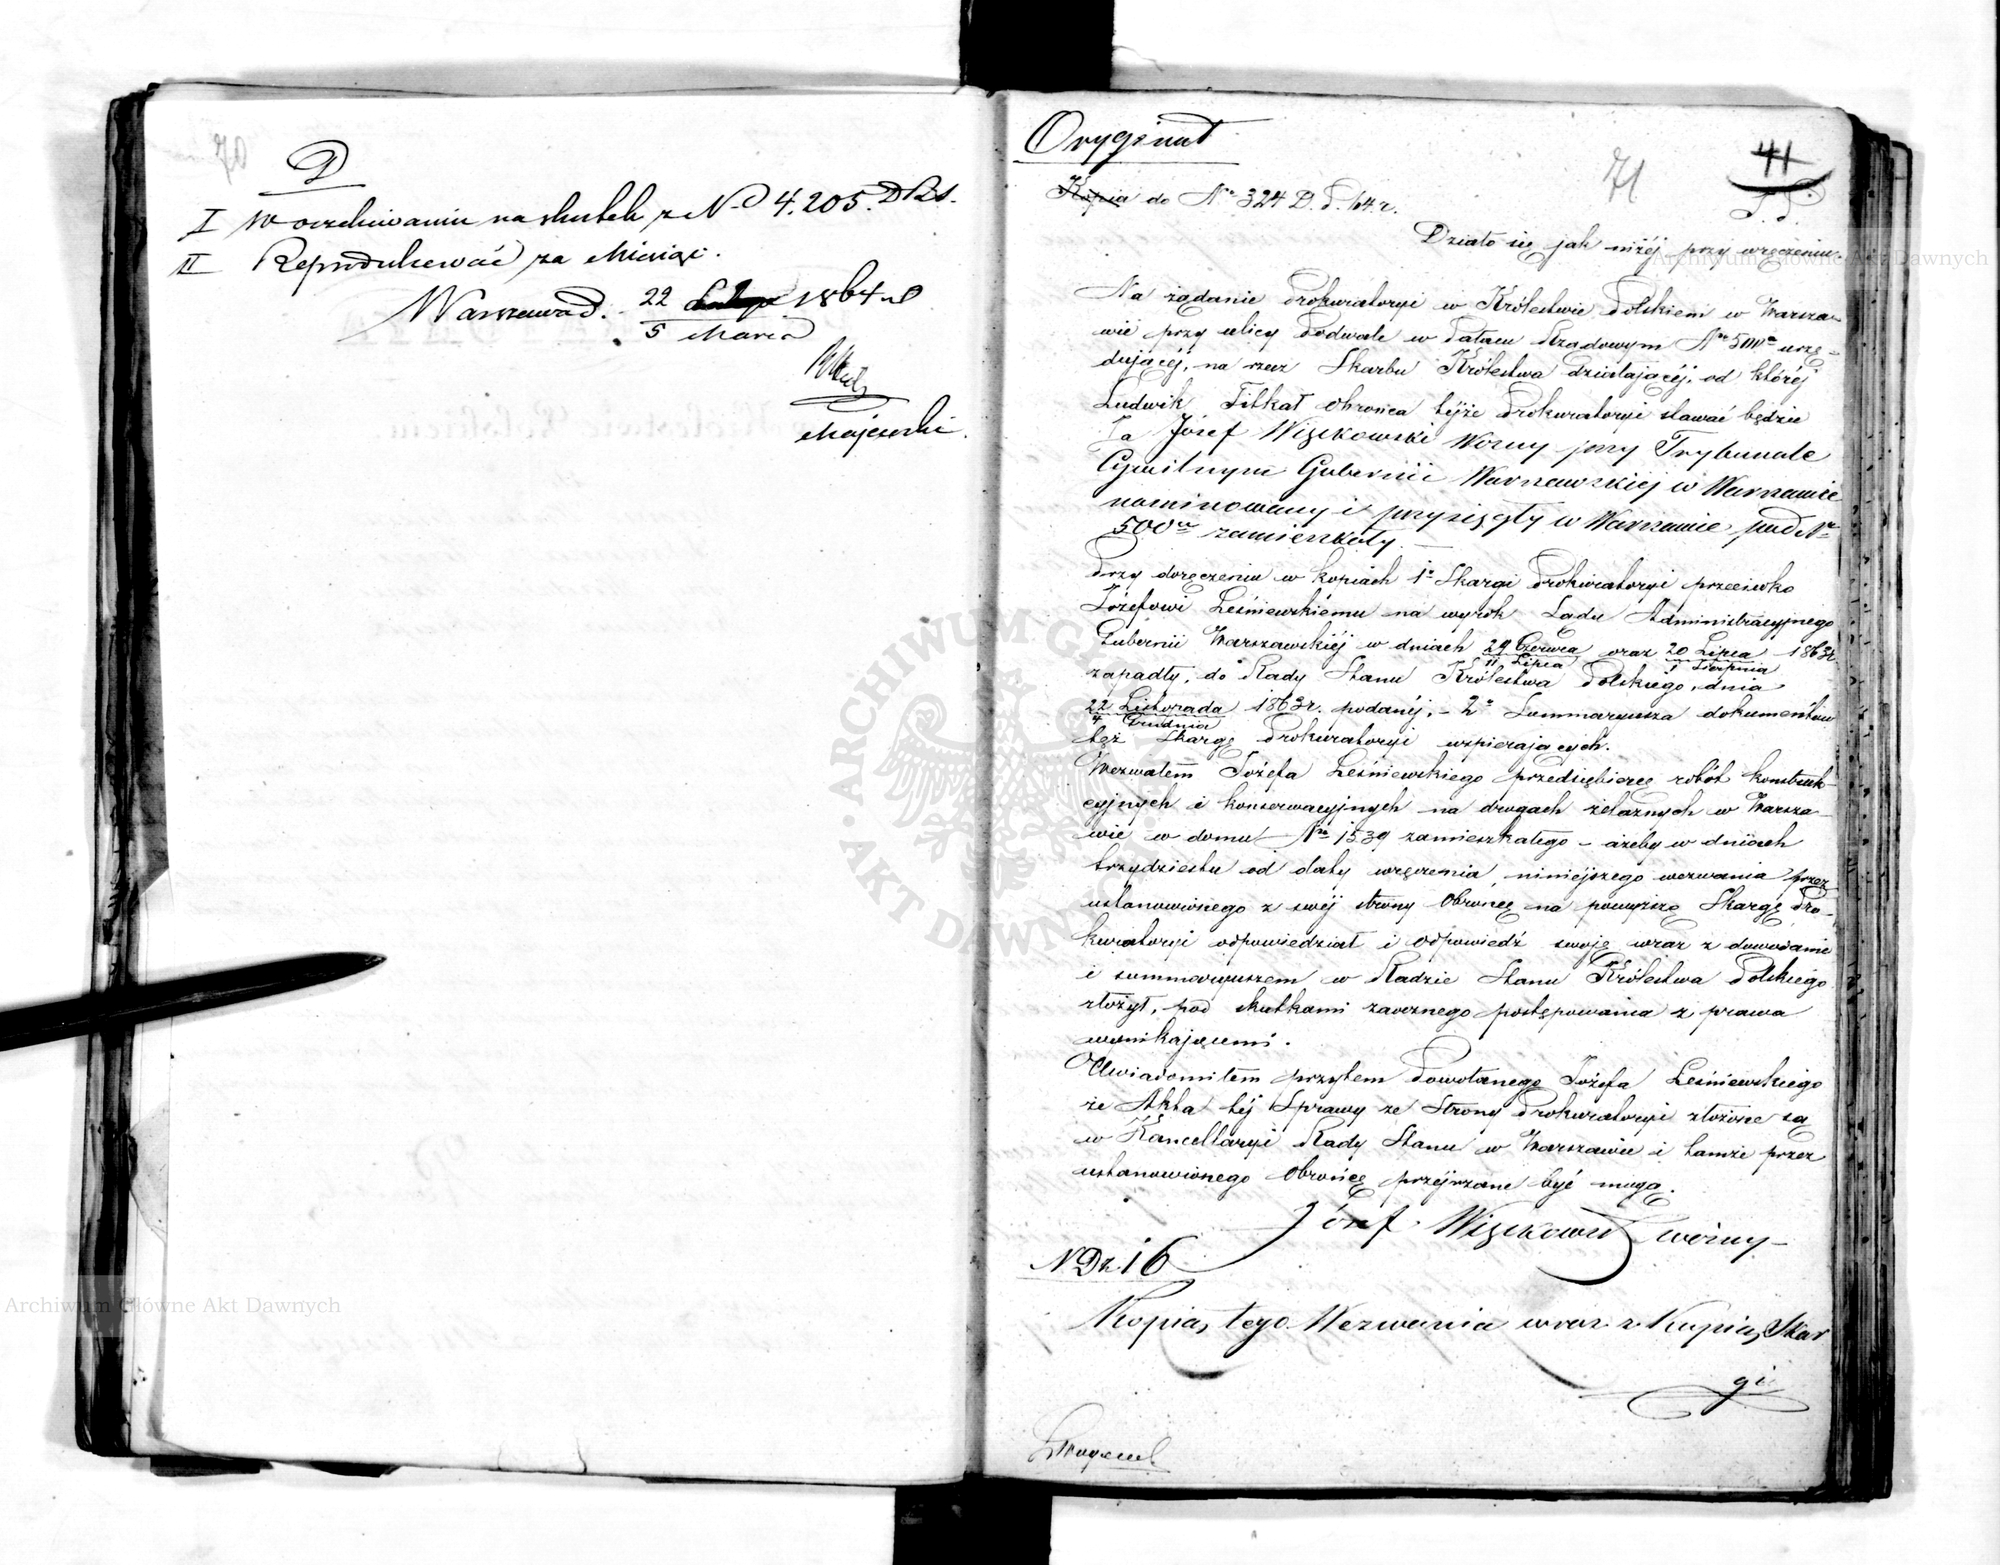 D
I W oczekiwaniu na skutek z No 4.205. DRS.
II Reprodukować za Miesiąc.
Warszawa d. 22 1864 r
5 Marca
Majewski.
Oryginał
41
71
Kopia do Nr 324 D. d. 64. r.
Działo się jak niżéj przy wręczeniu.
Na żądanie Prokuratoryi w Królestwie Polskiem w Warsza-
wie przy ulicy Podwale w Pałacu Rządowym Nro 500a urzę-
dującéj, na rzecz Skarbu Królestwa działającéj, od któréj
Ludwik Filkat Obrońca téjże Prokuratoryi stawać będzie
Ja Józef Więckowski Wozny przy Trybunale
Cywilnym Gubernii Warszawskiéj w Warszawie
nominowany i przysięgły w Warszawie pod Nr
500 zamieszkały.
Przy doręczeniu w kopiach 1o Skargi Prokuratoryi przeciwko
Józefowi Leśniewskiemu na wyrok Sądu Administracyjnego
Gubernii Warszawskiéj w dniach 29 Czerwca oraz 20 Lipca 1863r.
11 Lipca 1 Sierpnia
zapadły, do Rady Stanu Królestwa Polskiego, dnia
22 Listopada 1863r. podanéj, – 2o Summaryusza dokumentów
4 Grudnia
też Skargę Prokuratoryi wspierających.
Wezwałem Józefa Leśniewskiego przedsiębiercę robót konstruk-
cyjnych i konserwacyjnych na drogach żelaznych w Warsza-
wie w domu Nro 1539 zamieszkałego – ażeby w dniach
trzydziestu od daty wręczenia niniejszego wezwania przez
ustanowionego z swéj strony Obrońcę na powyższą Skargę Pro-
kuratoryi odpowiedział i odpowiedź swoję wraz z dowodami
i summaryuszem w Radzie Stanu Królestwa Polskiego
złożył, pod skutkami zaocznego postępowania z prawa
wynikającemi.
Uwiadomiłem przytem Powołanego Józefa Leśniewskiego
że Akta téj Sprawy ze Strony Prokuratoryi złożone są
w Kancellaryi Rady Stanu w Warszawie i tamże przez
ustanowionego Obrońcę przejrzane być mogą.
Józef Więckowski wozny
N Dz 16
Kopią tego Wezwania wraz z Kopią Skar
gi
ARCHIWUM GŁÓWNE AKT DAWNYCH
Archiwum Główne Akt Dawnych
Archiwum Główne Akt Dawnych